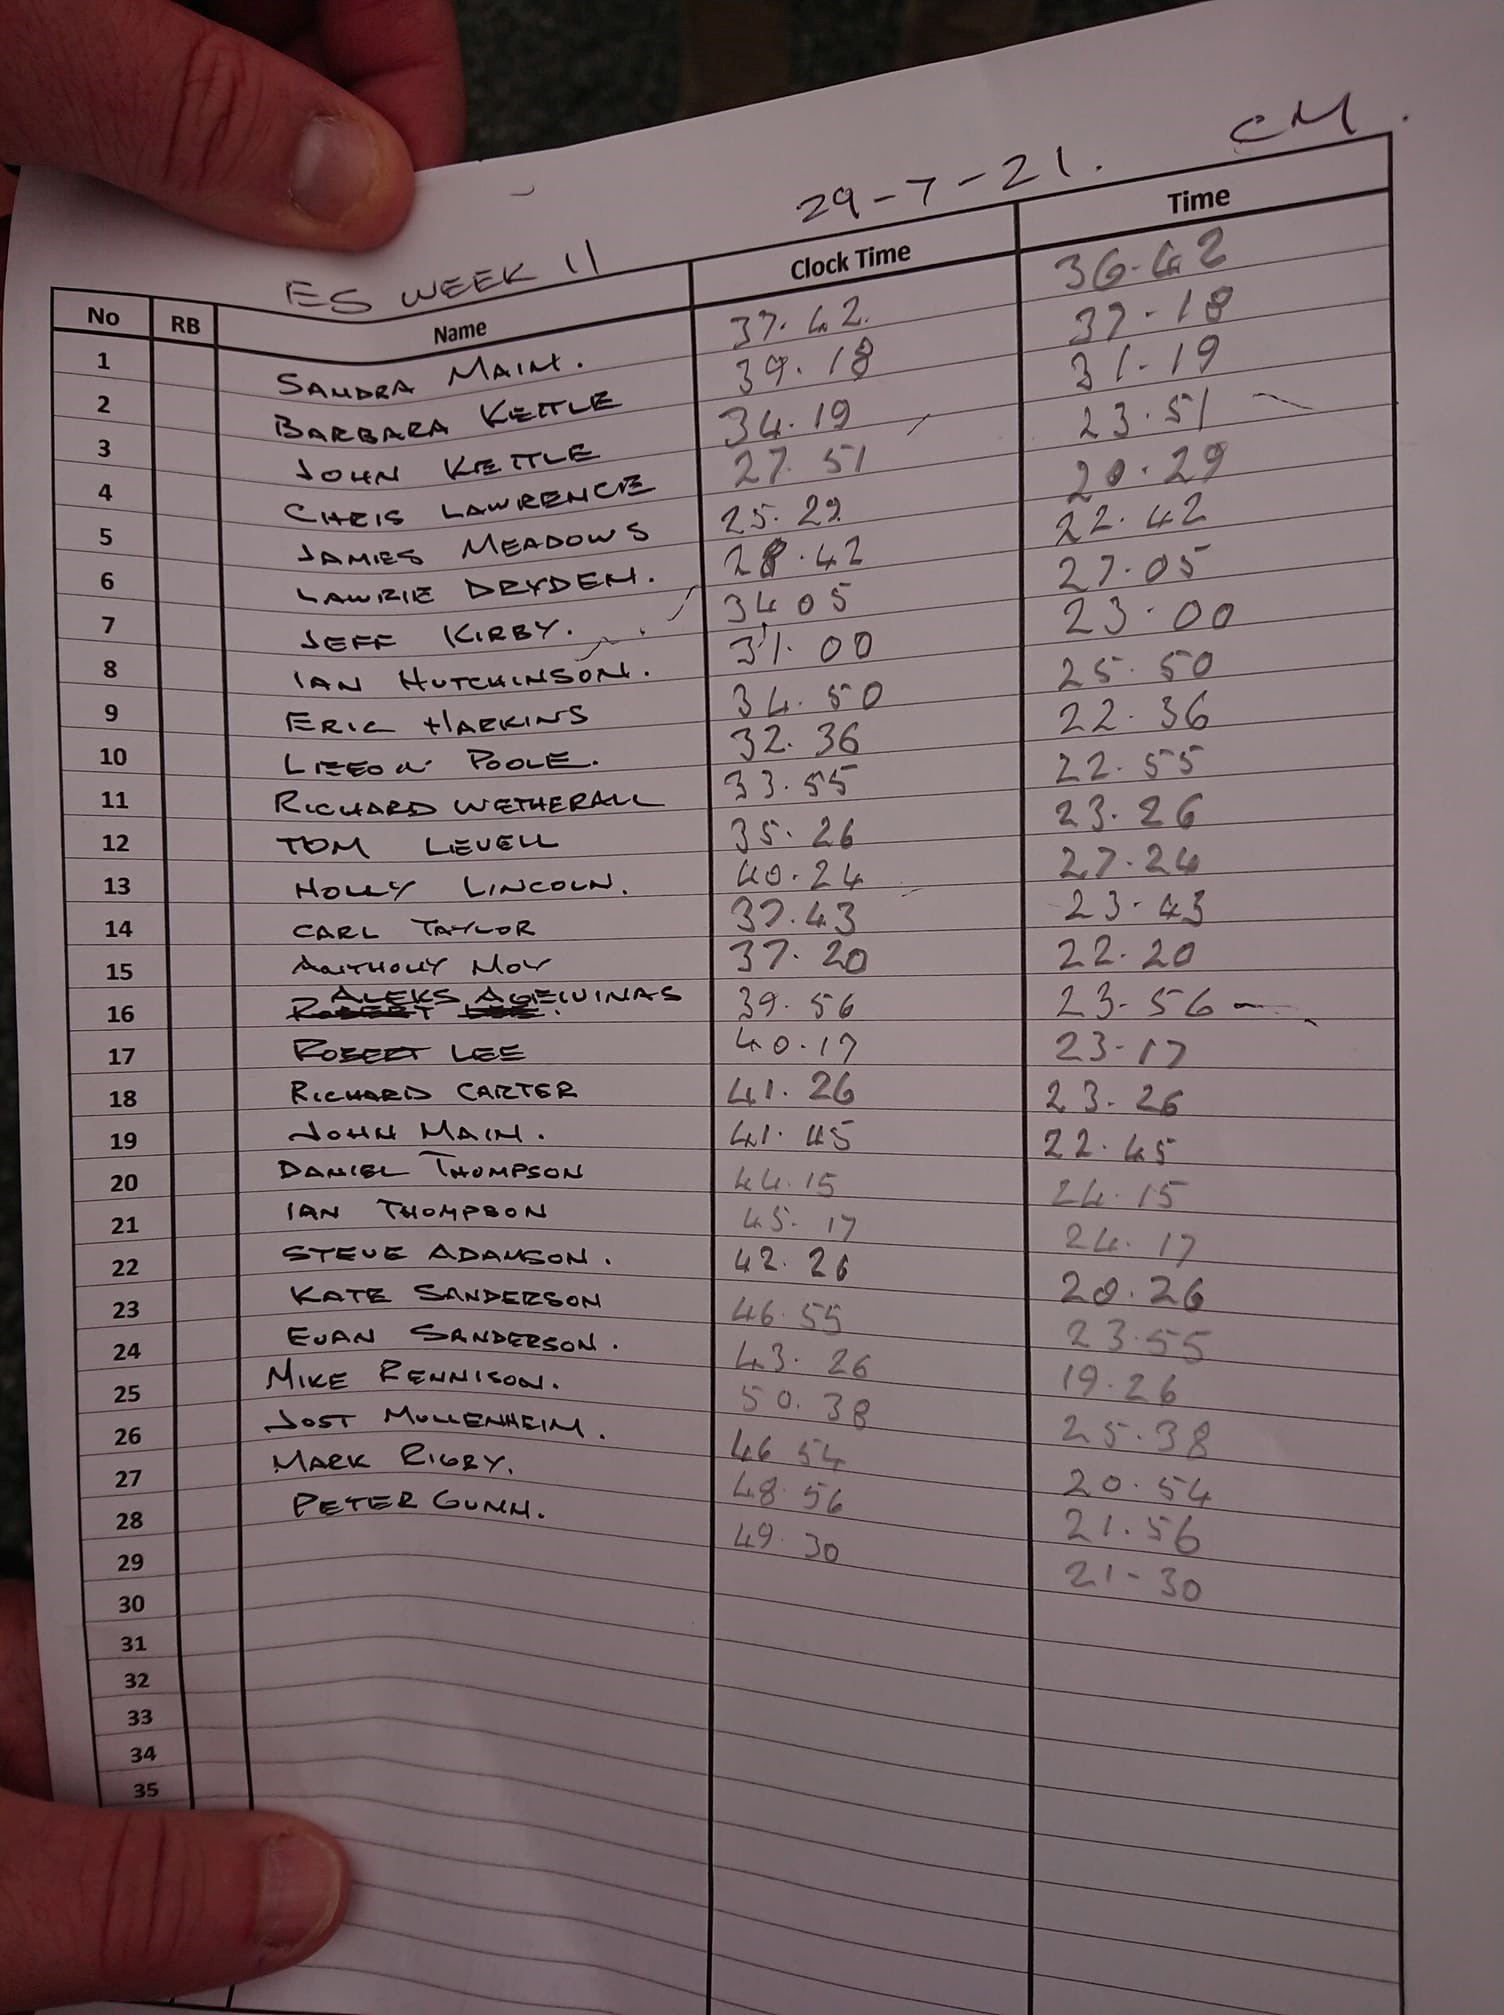 ES WEEK 11 29-7-21. CM.
No RB Name Clock Time Time
1 SANDRA MAIN. 37.42. 36.42
2 BARBARA KETTLE 39.18 37.18
3 JOHN KETTLE 34.19 31.19
4 CHRIS LAWRENCE 27.51 23.51
5 JAMES MEADOWS 25.29 20.29
6 LAWRIE DRYDEN. 28.42 22.42
7 JEFF KIRBY. 34 05 27.05
8 IAN HUTCHINSON. 31.00 23.00
9 ERIC HARKINS 34.50 25.50
10 POOLE. 32.36 22.36
11 RICHARD WETHERALL 33.55 22.55
12 TOM LEVELL 35.26 23.26
13 HOLLY LINCOLN. 40.24 27.24
14 CARL TAYLOR 37.43 23.43
15 ANTHONY MOY 37.20 22.20
16 ALEKS AGELVINAS 39.56 23.56
17 ROBERT LEE 40.17 23-17
18 RICHARD CARTER 41.26 23.26
19 JOHN MAIN. 41.45 22.45
20 DANIEL THOMPSON 44.15 24.15
21 IAN THOMPSON 45.17 24.17
22 STEVE ADAMSON. 42.26 20.26
23 KATE SANDERSON 46.55 23.55
24 EUAN SANDERSON. 43.26 19.26
25 MIKE RENNISON. 50.38 25.38
26 JOST MULLENHEIM. 46 54 20.54
27 MARK RIGBY. 48.56 21.56
28 PETER GUNN. 49.30 21-30
29
30
31
32
33
34
35